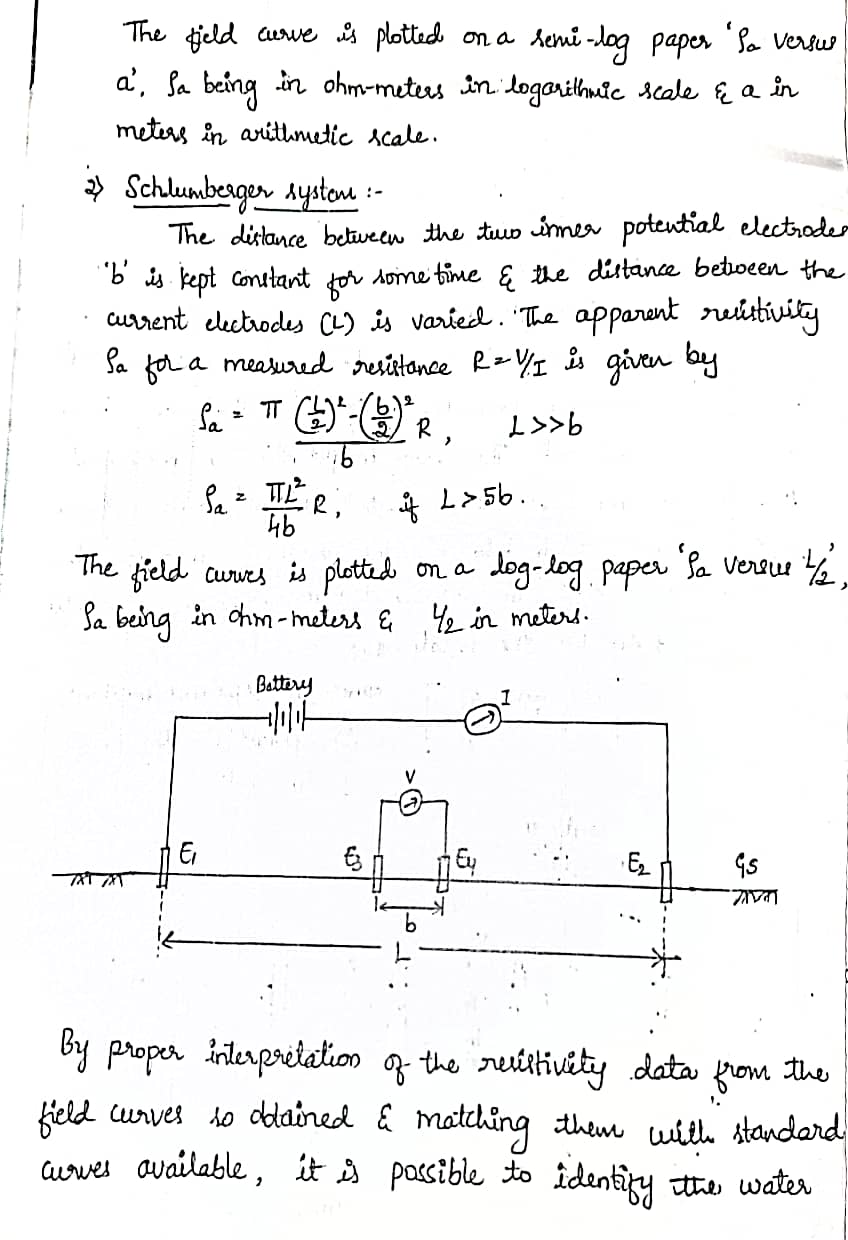 The field curve is plotted on a semi-log paper 'ρa versus
a', ρa being in ohm-meters in logarithmic scale & a in
meters in arithmetic scale.
2) Schlumberger system :-
The distance between the two inner potential electrodes
'b' is kept constant for some time & the distance between the
current electrodes (L) is varied. The apparent resistivity
ρa for a measured resistance R=V/I is given by
ρa = π ((L/2)² - (b/2)²)/b R, L>>b
ρa = πL²/4b R, if L>5b.
The field curves is plotted on a log-log paper 'ρa versus L/2',
ρa being in ohm-meters & L/2 in meters.
Battery
I
V
E1 E3 E4 E2 GS
b
L
By proper interpretation of the resistivity data from the
field curves so obtained & matching them with standard
curves available, it is possible to identify the water